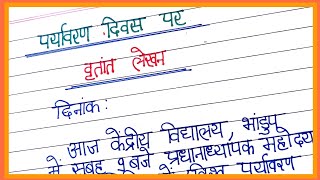 पर्यावरण दिवस पर
वृतांत लेखन
दिनांक:
आज केंद्रीय विद्यालय, भांडुप
में सुबह 9 बजे प्रधानाध्यापक महोदय
में विश्व पर्यावरण